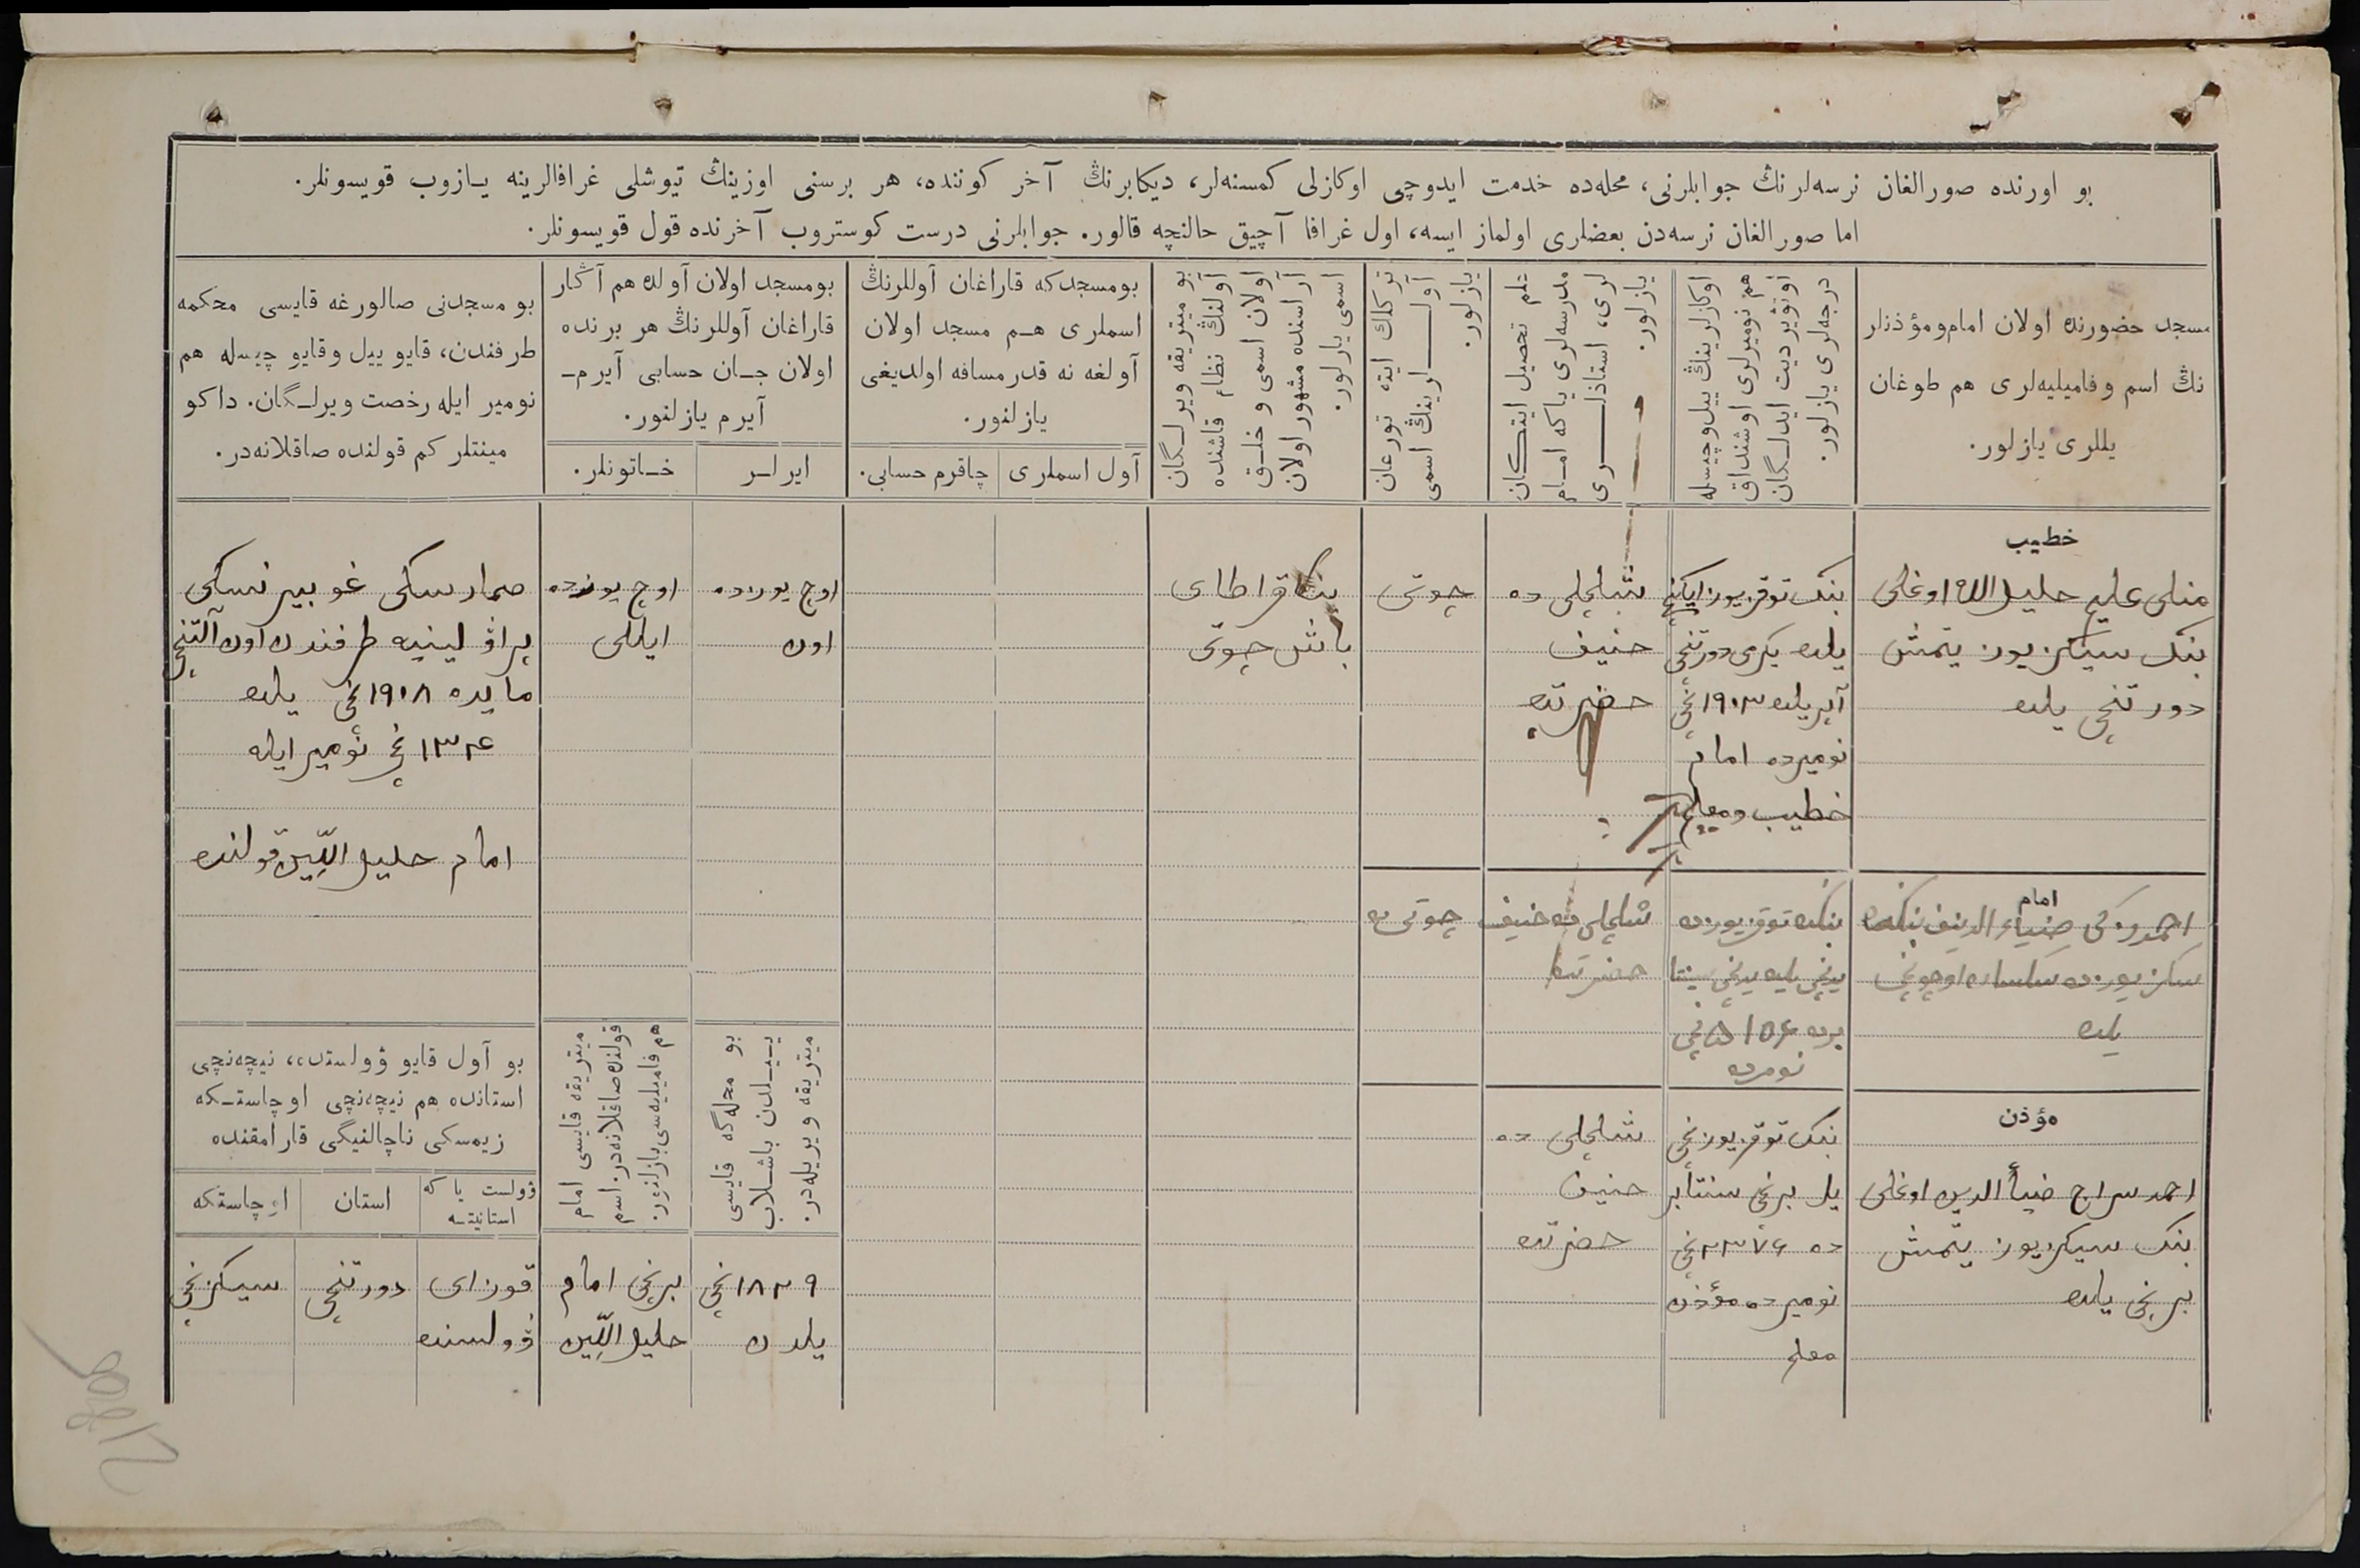 بو اورنده صورالغان نرسه‌لرنڭ جوابلرنی، محله‌ده خدمت ایدوچی اوكازلی كمسنه‌لر، دیكابرنڭ آخر كوننده، هر برسنی اوزینڭ تیوشلی غرافالرینه یـازوب قویسونلر.
اما صورالغان نرسه‌دن بعضلری اولماز ایسه، اول غرافا آچیق حالنچه قالور. جوابلرنی درست كوستروب آخرنده قول قویسونلر.
مسجد حضورنده اولان امام‌ومؤذنلر
نڭ اسم وفامیلیه‌لری هم طوغان
یللری یازلور.
اوكازلرینڭ ییل‌وچیسله
هم نومیرلری اوشنداق
اوتویردیت ایدلـگان
درجه‌لری یازلور.
علم تحصیل ایتـكان
مدرسه‌لری یاكه امـام
لری، استاذلـری
یازلور.
تركلك ایته تورغان
آولـلرینڭ اسمی
یازلور.
بو میتریقه ویرلـگان
آولنڭ نظام قاشنده
اولان اسمی و خلـق
آراسنده مشهور اولان
اسمی یازلور.
بومسجدكه قاراغان آوللرنڭ
اسملری هـم مسجد اولان
آولغه نه قدر مسافه اولدیغی
یازلنور.
آول اسملری
چاقرم حسابی.
بومسجد اولان آولده هم آڭار
قاراغان آوللرنڭ هر برنده
اولان جـان حسابی آیرمـ
آیرم یازلنور.
ایرلـر
خـاتونلر.
بو مسجدنی صالورغه قایسی محكمه
طرفندن، قایو ییل وقایو چیسله هم
نومیر ایله رخصت ویرلـگان. داكو
مینتلر كم قولنده صاقلانه‌در.
خطیب
منلی علیم خلیل الله اوغلی
بنك سیكز یوز یتمش
دورتنچی یلده
بنك توقز یوز ایكنچی
یلده یكرمی دورتنچی
آپریلده ١٩٠٣ نچی
نومیرده امام
خطیب ومعلم
شلچلی ده
حنیف
حضرتده
چوتی
قراطای
باش چوتی
اوچ یوزده
اون
اوچ یوزده
ایللی
صمارسكی غوبیرنسكی
پراۋلینیه طرفندن اون آلتنچی
مایده ١٩٠٨ نچی یلده
١٣٢٤ نچی نومیر ایله
امام خلیل الدین قولنده
امام
احمدزكی ضیاء الدینف بنكده
سكز یوزده سكسان اوچونچی
یلده
بنكده توقز یوزده
یدنچی یلده یدنچی سینتا
برده ٥١٥٤ نچی
نومرده
شلچلی ده حنیف
حضرتده
چوتی ده
مؤذن
احمد سراج ضیأ الدین اوغلی
بنك سیكز یوز یتمش
برنچی یلده
بنك توقز یوزنچی
یل برنچی سنتابر
ده ٢٣٧٤ نچی
نومیرده مؤذن
معلم
شلچلی ده
حنیف
حضرتده
بو محله‌گه قایسی
ییـلدن باشـلاب
میتریقه ویریله‌در.
میتریقه قایسی امام
قولنده صاقلانه‌در. اسم
هم فامیلیه‌سی یازلنور.
بو آول قایو ۋولستده، نیچه‌نچی
استانده هم نیچه‌نچی اوچاستـكه
زیمسكی ناچالنیگی قارامقنده
ۋولست یاكه
استانیتسه
استان
اوچاستكه
١٨٢٩ نچی
یلدن
برنچی امام
خلیل الدین
قوزای
ۋولسنده
دورتنچی
سیكزنچی